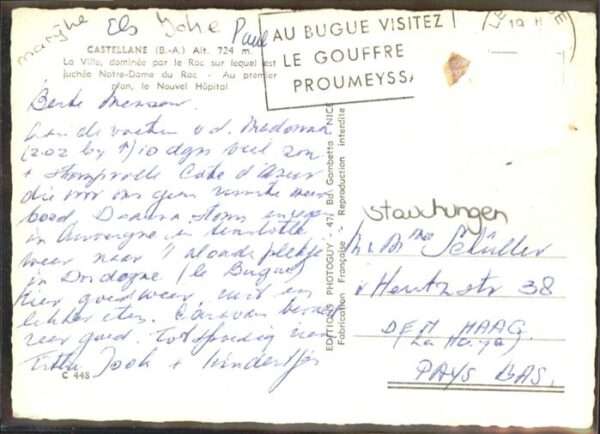 marijke Els Joke Paul
CASTELLANE (B.-A.) Alt. 724 m.
La Ville, dominée par le Roc sur lequel est
juchée Notre-Dame du Roc - Au premier
plan, le Nouvel Hôpital
AU BUGUE VISITEZ
LE GOUFFRE
PROUMEYSSA
19 H
Beste Mensen.
Aan de voeten v.d. Madonna
(202 by ↑) 10 dgn veel zon
+ Côte d'Azur
die voor ons geen ruimte meer
bood. Daarna storm en regen
in Auvergne en tenslotte
weer naar "n oude plekje
in Dordogne (le Bugue)
hier goed weer, rust en
lekker eten. Caravan
zeer goed. Tot spoedig van
Jook + kindertjes
C 448
EDITIONS PHOTOGUY - 47, Bd Gambetta - NICE
Fabrication Française - Reproduction interdite
stauchungen
Schüller
v Heutzstr 38
DEN HAAG
(La Haye)
PAYS BAS.